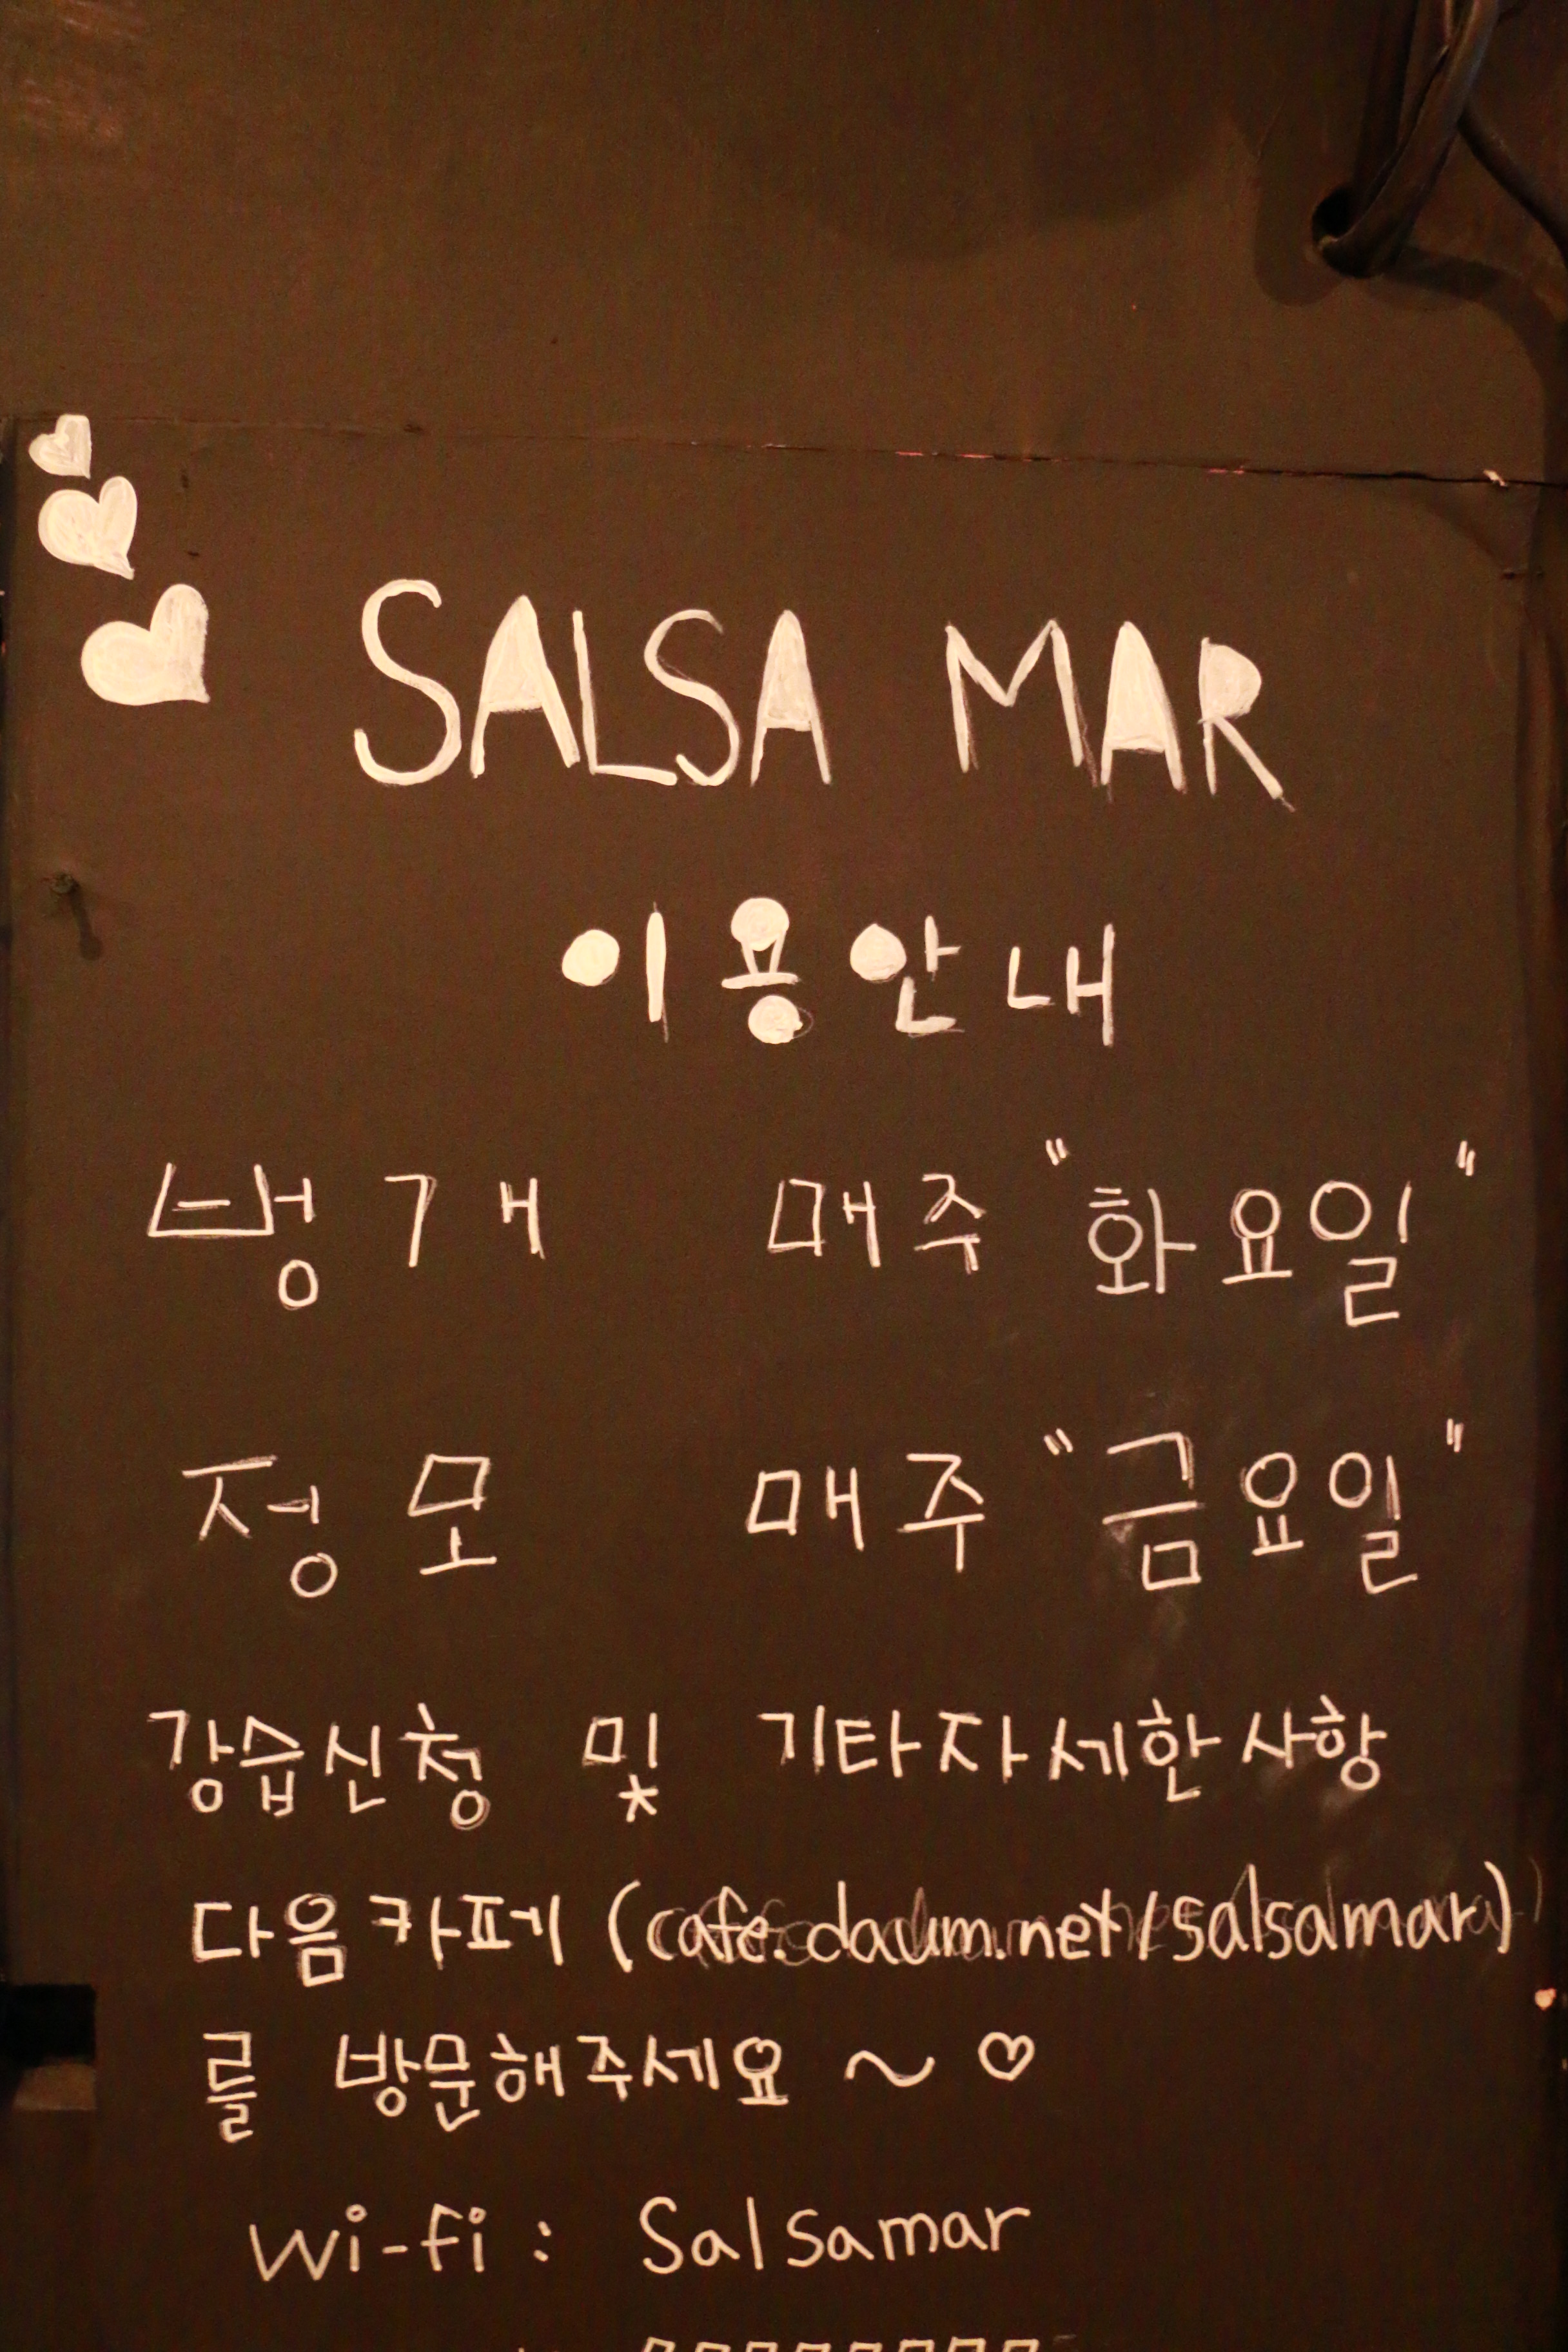 SALSA MAR
이용안내
벙개 매주 "화요일"
정모 매주 "금요일"
강습신청 및 기타자세한사항
다음카페 (cafe.daum.net/salsamar)
를 방문해주세요~♡
wi-fi : Salsamar